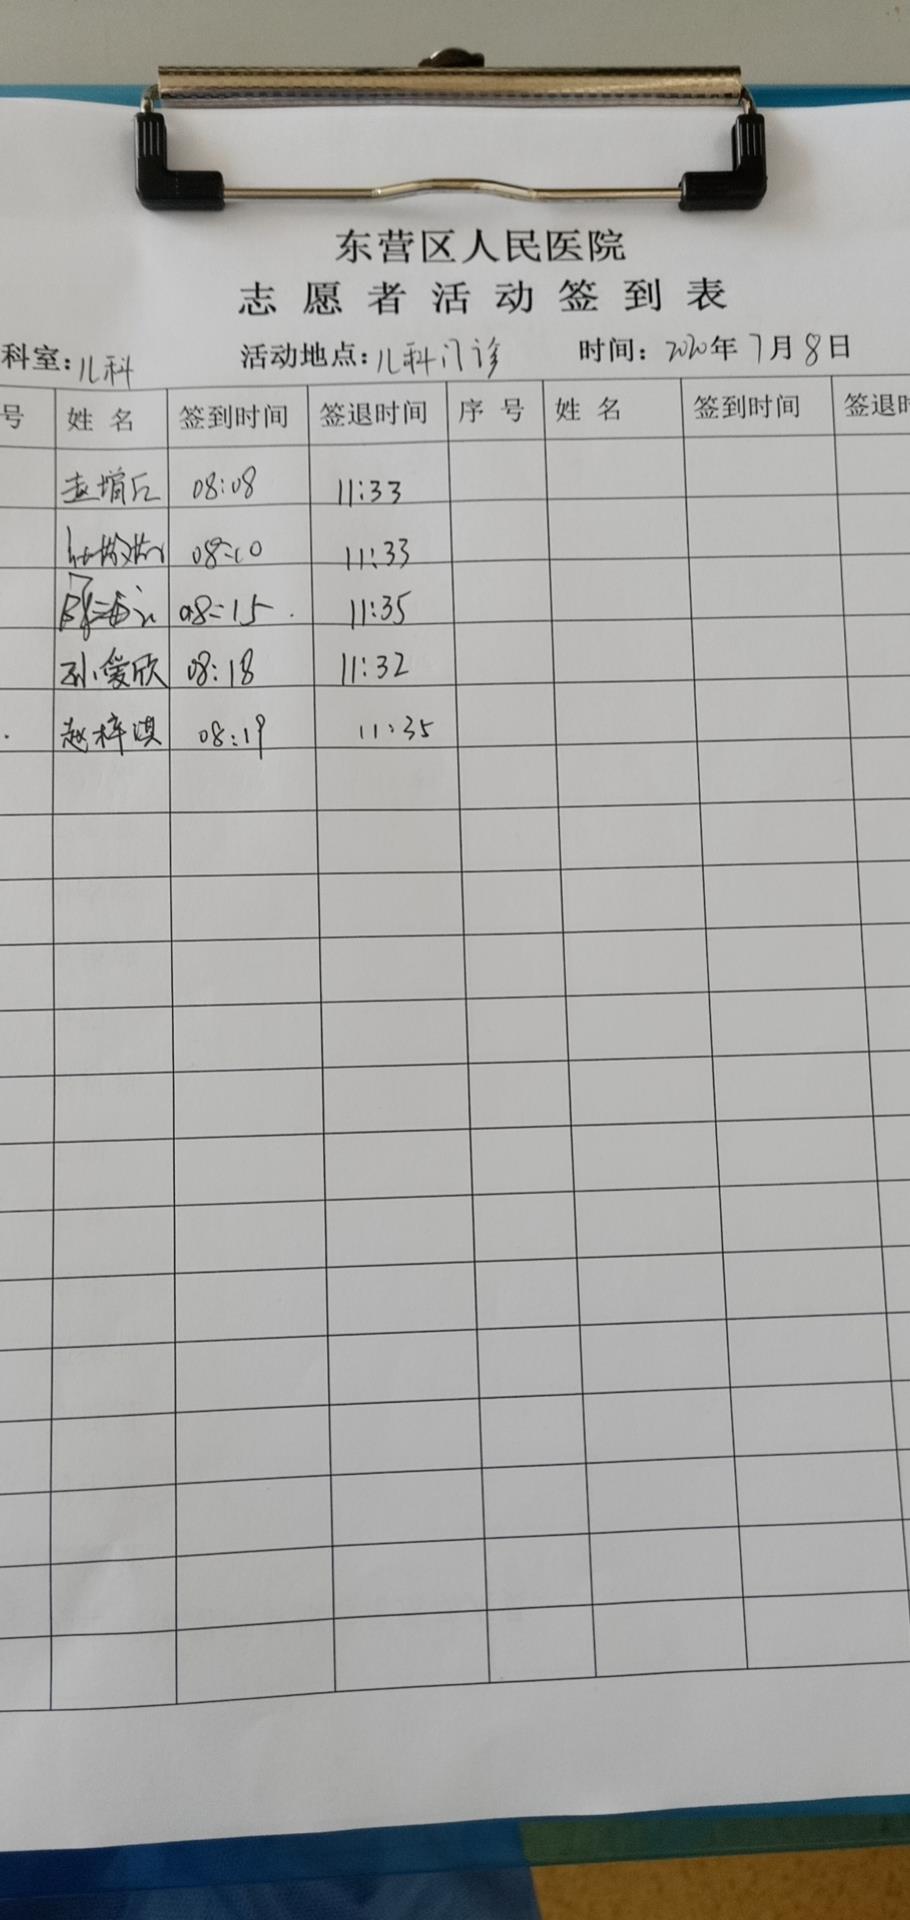 东营区人民医院
志愿者活动签到表
科室:儿科 活动地点:儿科门诊 时间:2020年7月8日
号 姓名 签到时间 签退时间 序号 姓名 签到时间 签退时
08:08 11:33
08:10 11:33
08:15 11:35
孙爱欣 08:18 11:32
赵梓淇 08:19 11:35